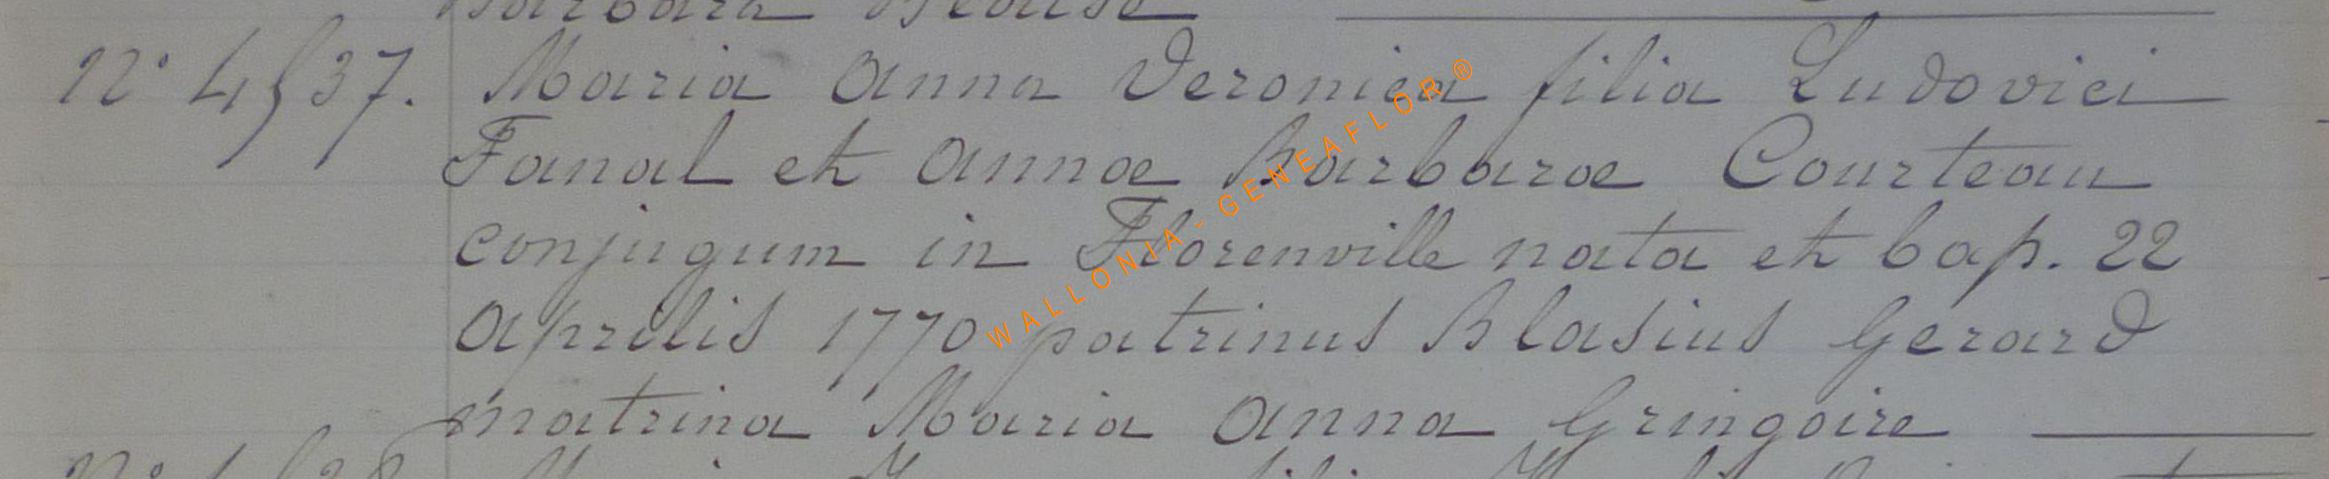 Barbara
N° 4537. Maria Anna Veronica filia Ludovici
Fanal et Annæ Barbaræ Courteau
conjugum in Florenville nata et bap. 22
Aprilis 1770 patrinus Blasius Gerard
matrina Maria Anna Gringoire
WALLONIA - GENEAFLOR ®